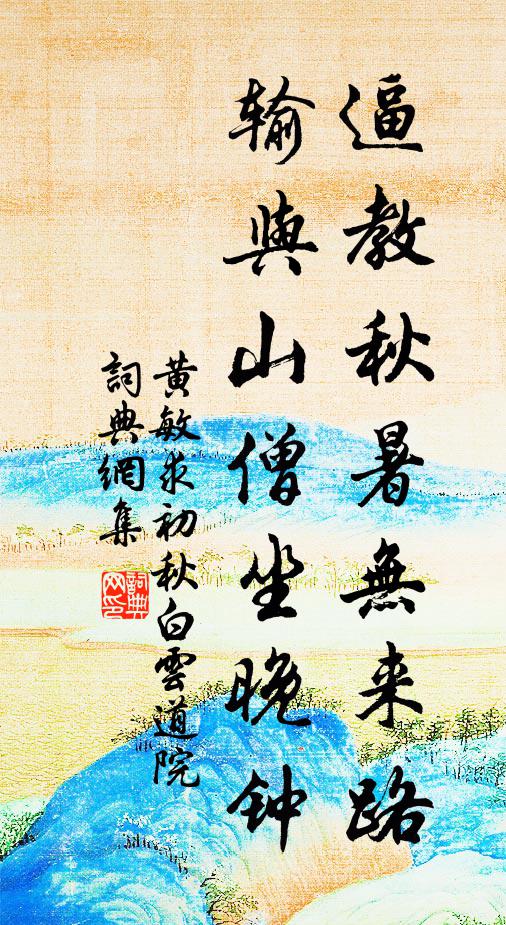 逼教秋暑無来路
输與山僧坐晚钟
黃敏求初秋白雲道院
詞典網集
詞典網印